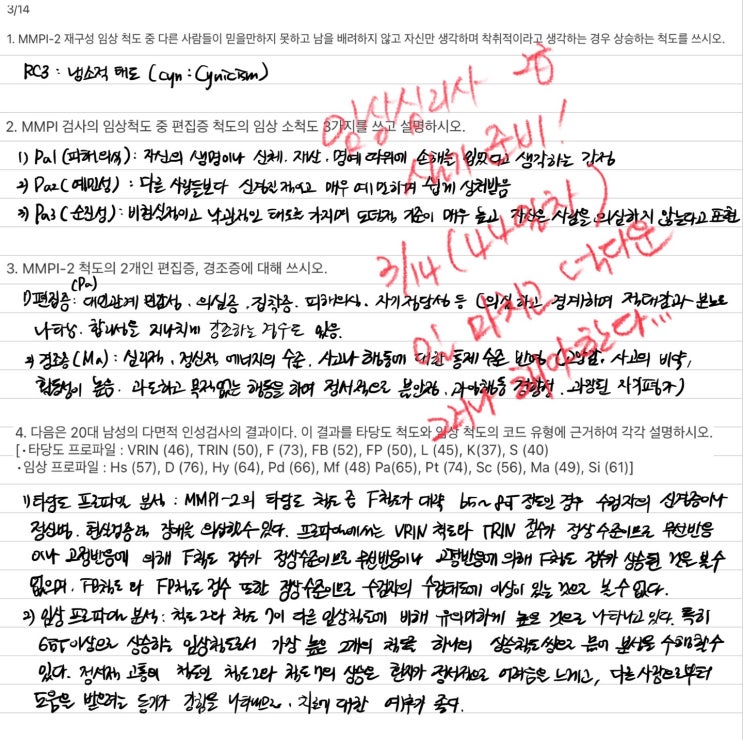 3/14
1. MMPI-2 재구성 임상 척도 중 다른 사람들이 믿을만하지 못하고 남을 배려하지 않고 자신만 생각하며 착취적이라고 생각하는 경우 상승하는 척도를 쓰시오.
RC3 : 냉소적 태도 (cyn : Cynicism)
임상심리사 2급
2. MMPI 검사의 임상척도 중 편집증 척도의 임상 소척도 3가지를 쓰고 설명하시오.
실기 준비!
1) Pa1 (피해의식) : 자신의 생명이나 신체, 재산, 명예 따위에 손해를 입었다고 생각하는 감정
2) Pa2 (예민성) : 다른 사람들보다 신경질적이고 매우 예민하며 쉽게 상처받음
3) Pa3 (순진성) : 비현실적이고 낙관적인 태도를 가지며 도덕적 기준이 매우 높고 자신은 사람을 의심하지 않는다고 표현
3/14 (44일차)
3. MMPI-2 척도의 2개인 편집증, 경조증에 대해 쓰시오.
1) 편집증(Pa) : 대인관계 민감성, 의심증, 집착증, 피해의식, 자기정당성 등 (의심하고 경계하며 적대감과 분노로
나타남. 합리성을 지나치게 강조하는 경우도 있음.
일 마치고 넉다운
2) 경조증 (Ma) : 심리적, 정신적 에너지의 수준, 사고나 행동에 대한 통제 수준 반영 (고양감, 사고의 비약,
활동성이 높음. 과도하고 목적없는 행동을 하며 정서적으로 불안정, 과잉행동, 경향성, 과장된 자기평가)
그러나 해야한다...
4. 다음은 20대 남성의 다면적 인성검사의 결과이다. 이 결과를 타당도 척도와 임상 척도의 코드 유형에 근거하여 각각 설명하시오.
[・타당도 프로파일 : VRIN (46), TRIN (50), F (73), FB (52), FP (50), L (45), K(37), S (40)
・임상 프로파일 : Hs (57), D (76), Hy (64), Pd (66), Mf (48) Pa(65), Pt (74), Sc (56), Ma (49), Si (61)]
1) 타당도 프로파일 분석 : MMPI-2의 타당도 척도 중 F척도가 대략 65~85T 정도인 경우 수검자의 신경증이나
정신병, 현실검증력 장애를 의심할 수 있다. 프로파일에서는 VRIN 척도와 TRIN 점수가 정상수준이므로 무선반응
이나 고정반응에 의해 F척도 점수가 정상수준이므로 무선반응이나 고정반응에 의해 F척도 점수가 상승된 것은 볼 수
없으며, FB척도와 FP척도 점수 또한 정상수준이므로 수검자의 수검태도에 이상이 있는 것으로 볼 수 없다.
2) 임상 프로파일 분석 : 척도 2와 척도 7이 다른 임상척도에 비해 유의미하게 높은 것으로 나타나고 있다. 특히
65T 이상으로 상승하는 임상척도로서 가장 높은 2개의 척도를 하나의 상승척도쌍으로 묶어 분석을 수행할 수
있다. 정서적 고통의 척도인 척도 2와 척도 7의 상승은 환자가 정서적으로 어려움을 느끼고, 다른 사람으로부터
도움을 받으려는 동기가 강함을 나타내므로, 치료에 대한 예후가 좋다.